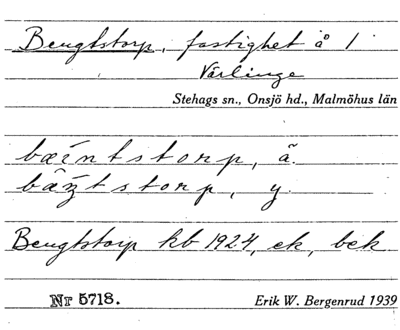 Bengtstorp, fastighet å 1
Värlinge
Stehags sn., Onsjö hd., Malmöhus län
bæ´ntstorp, ã.
Bengtstorp kb 1924, ek, bek
Nr 5718. Erik W. Bergenrud 1939